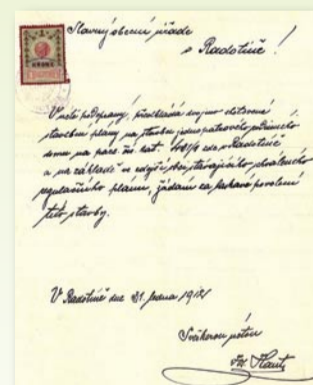 Slavný obecní úřade
v Radotíně!
V úctě podepsaný, předkládá dvojmo
stavební plány na stavbu jednopatrového rodinného
domu na parc. čís. kat. zde v Radotíně
a na základě schváleného
regulačního plánu, žádám za laskavé povolení
této stavby.
V Radotíně dne 31. ledna 1912